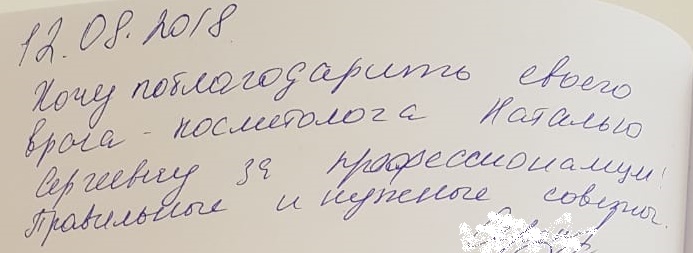 12.08.2018
Хочу поблагодарить своего
врача-косметолога Наталью
Сергеевну за профессионализм!
Правильные и нужные советы.